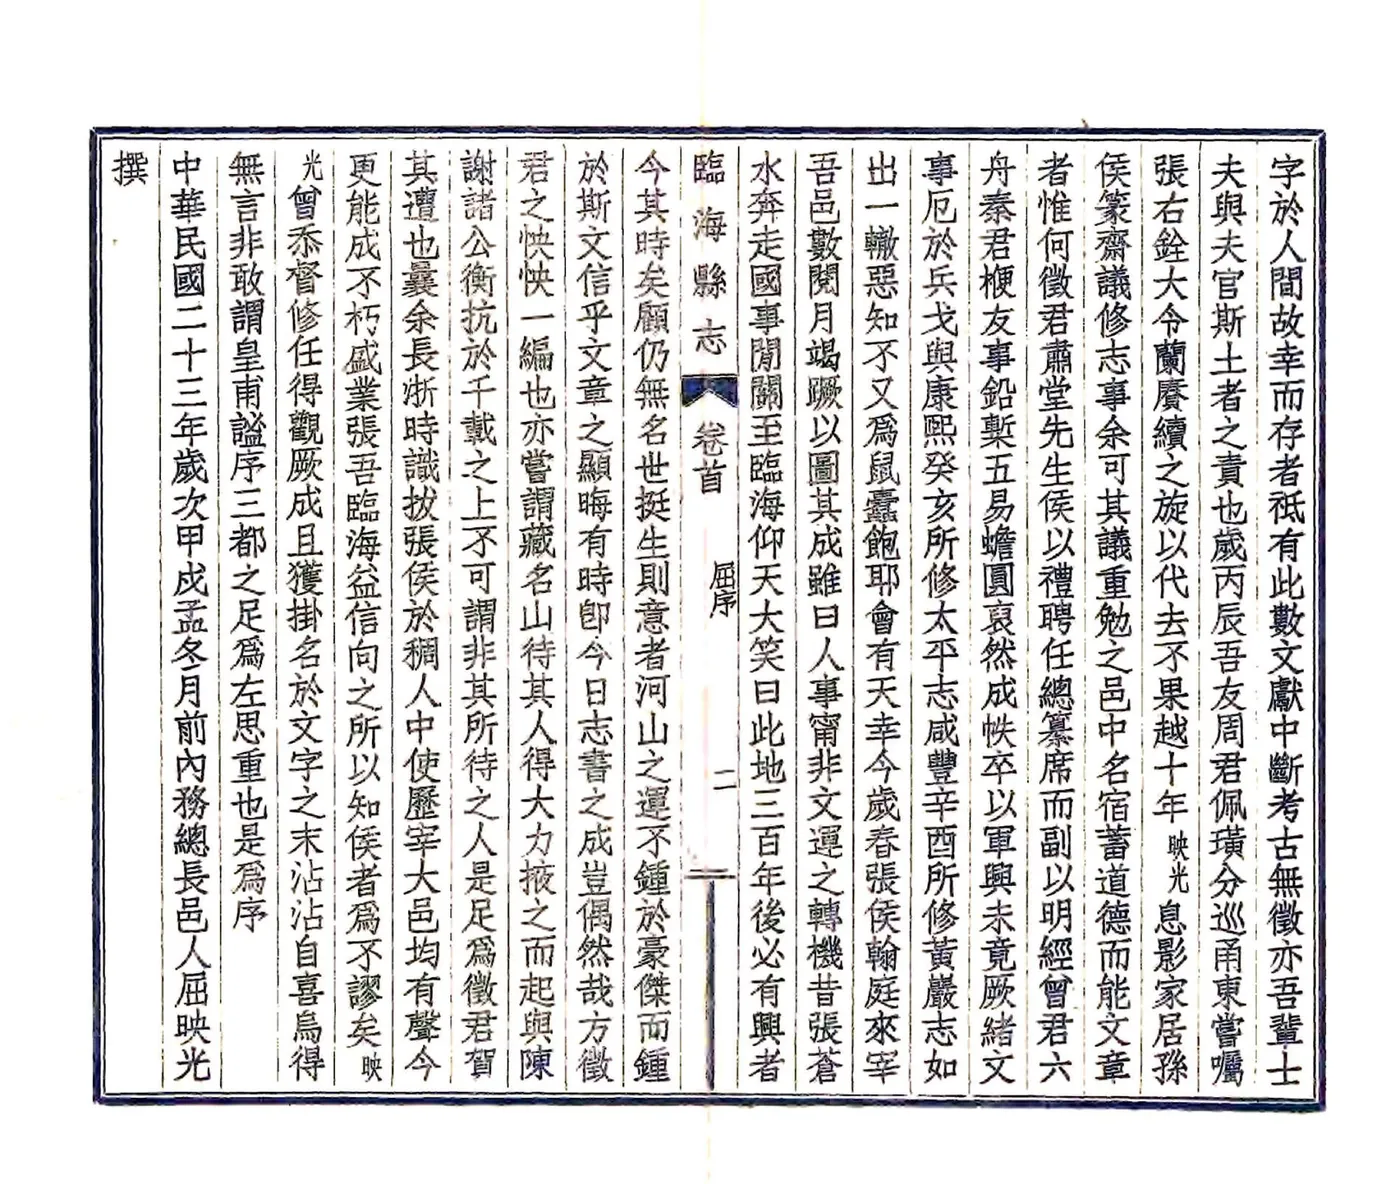 字於人間故幸而存者祗有此數文獻中斷考古無徵亦吾輩士
夫與夫官斯土者之責也歲丙辰吾友周君佩璜分巡甬東嘗囑
張右銓大令蘭賡續之旋以代去不果越十年映光息影家居孫
侯篆齋議修志事余可其議重勉之邑中名宿蓄道德而能文章
者惟何徵君肅堂先生侯以禮聘任總纂席而副以明經曾君六
舟秦君梗友事鉛槧五易蟾圓裒然成帙卒以軍興未竟厥緒文
事厄於兵戈與康熙癸亥所修太平志咸豐辛酉所修黃巖志如
出一轍惡知不又爲鼠蠹飽耶會有天幸今歲春張侯翰庭來宰
吾邑數閱月竭蹶以圖其成雖曰人事甯非文運之轉機昔張蒼
水奔走國事閒關至臨海仰天大笑曰此地三百年後必有興者
臨海縣志 卷首 屈序 二
今其時矣顧仍無名世挺生則意者河山之運不鍾於豪傑而鍾
於斯文信乎文章之顯晦有時卽今日志書之成豈偶然哉方徵
君之怏怏一編也亦嘗謂藏名山待其人得大力掖之而起與陳
謝諸公衡抗於千載之上不可謂非其所待之人是足爲徵君賀
其遭也曩余長浙時識拔張侯於稠人中使歷宰大邑均有聲今
更能成不朽盛業張吾臨海益信向之所以知侯者爲不謬矣映
光曾忝督修任得觀厥成且獲掛名於文字之末沾沾自喜烏得
無言非敢謂皇甫謐序三都之足爲左思重也是爲序
中華民國二十三年歲次甲戌孟冬月前內務總長邑人屈映光
撰